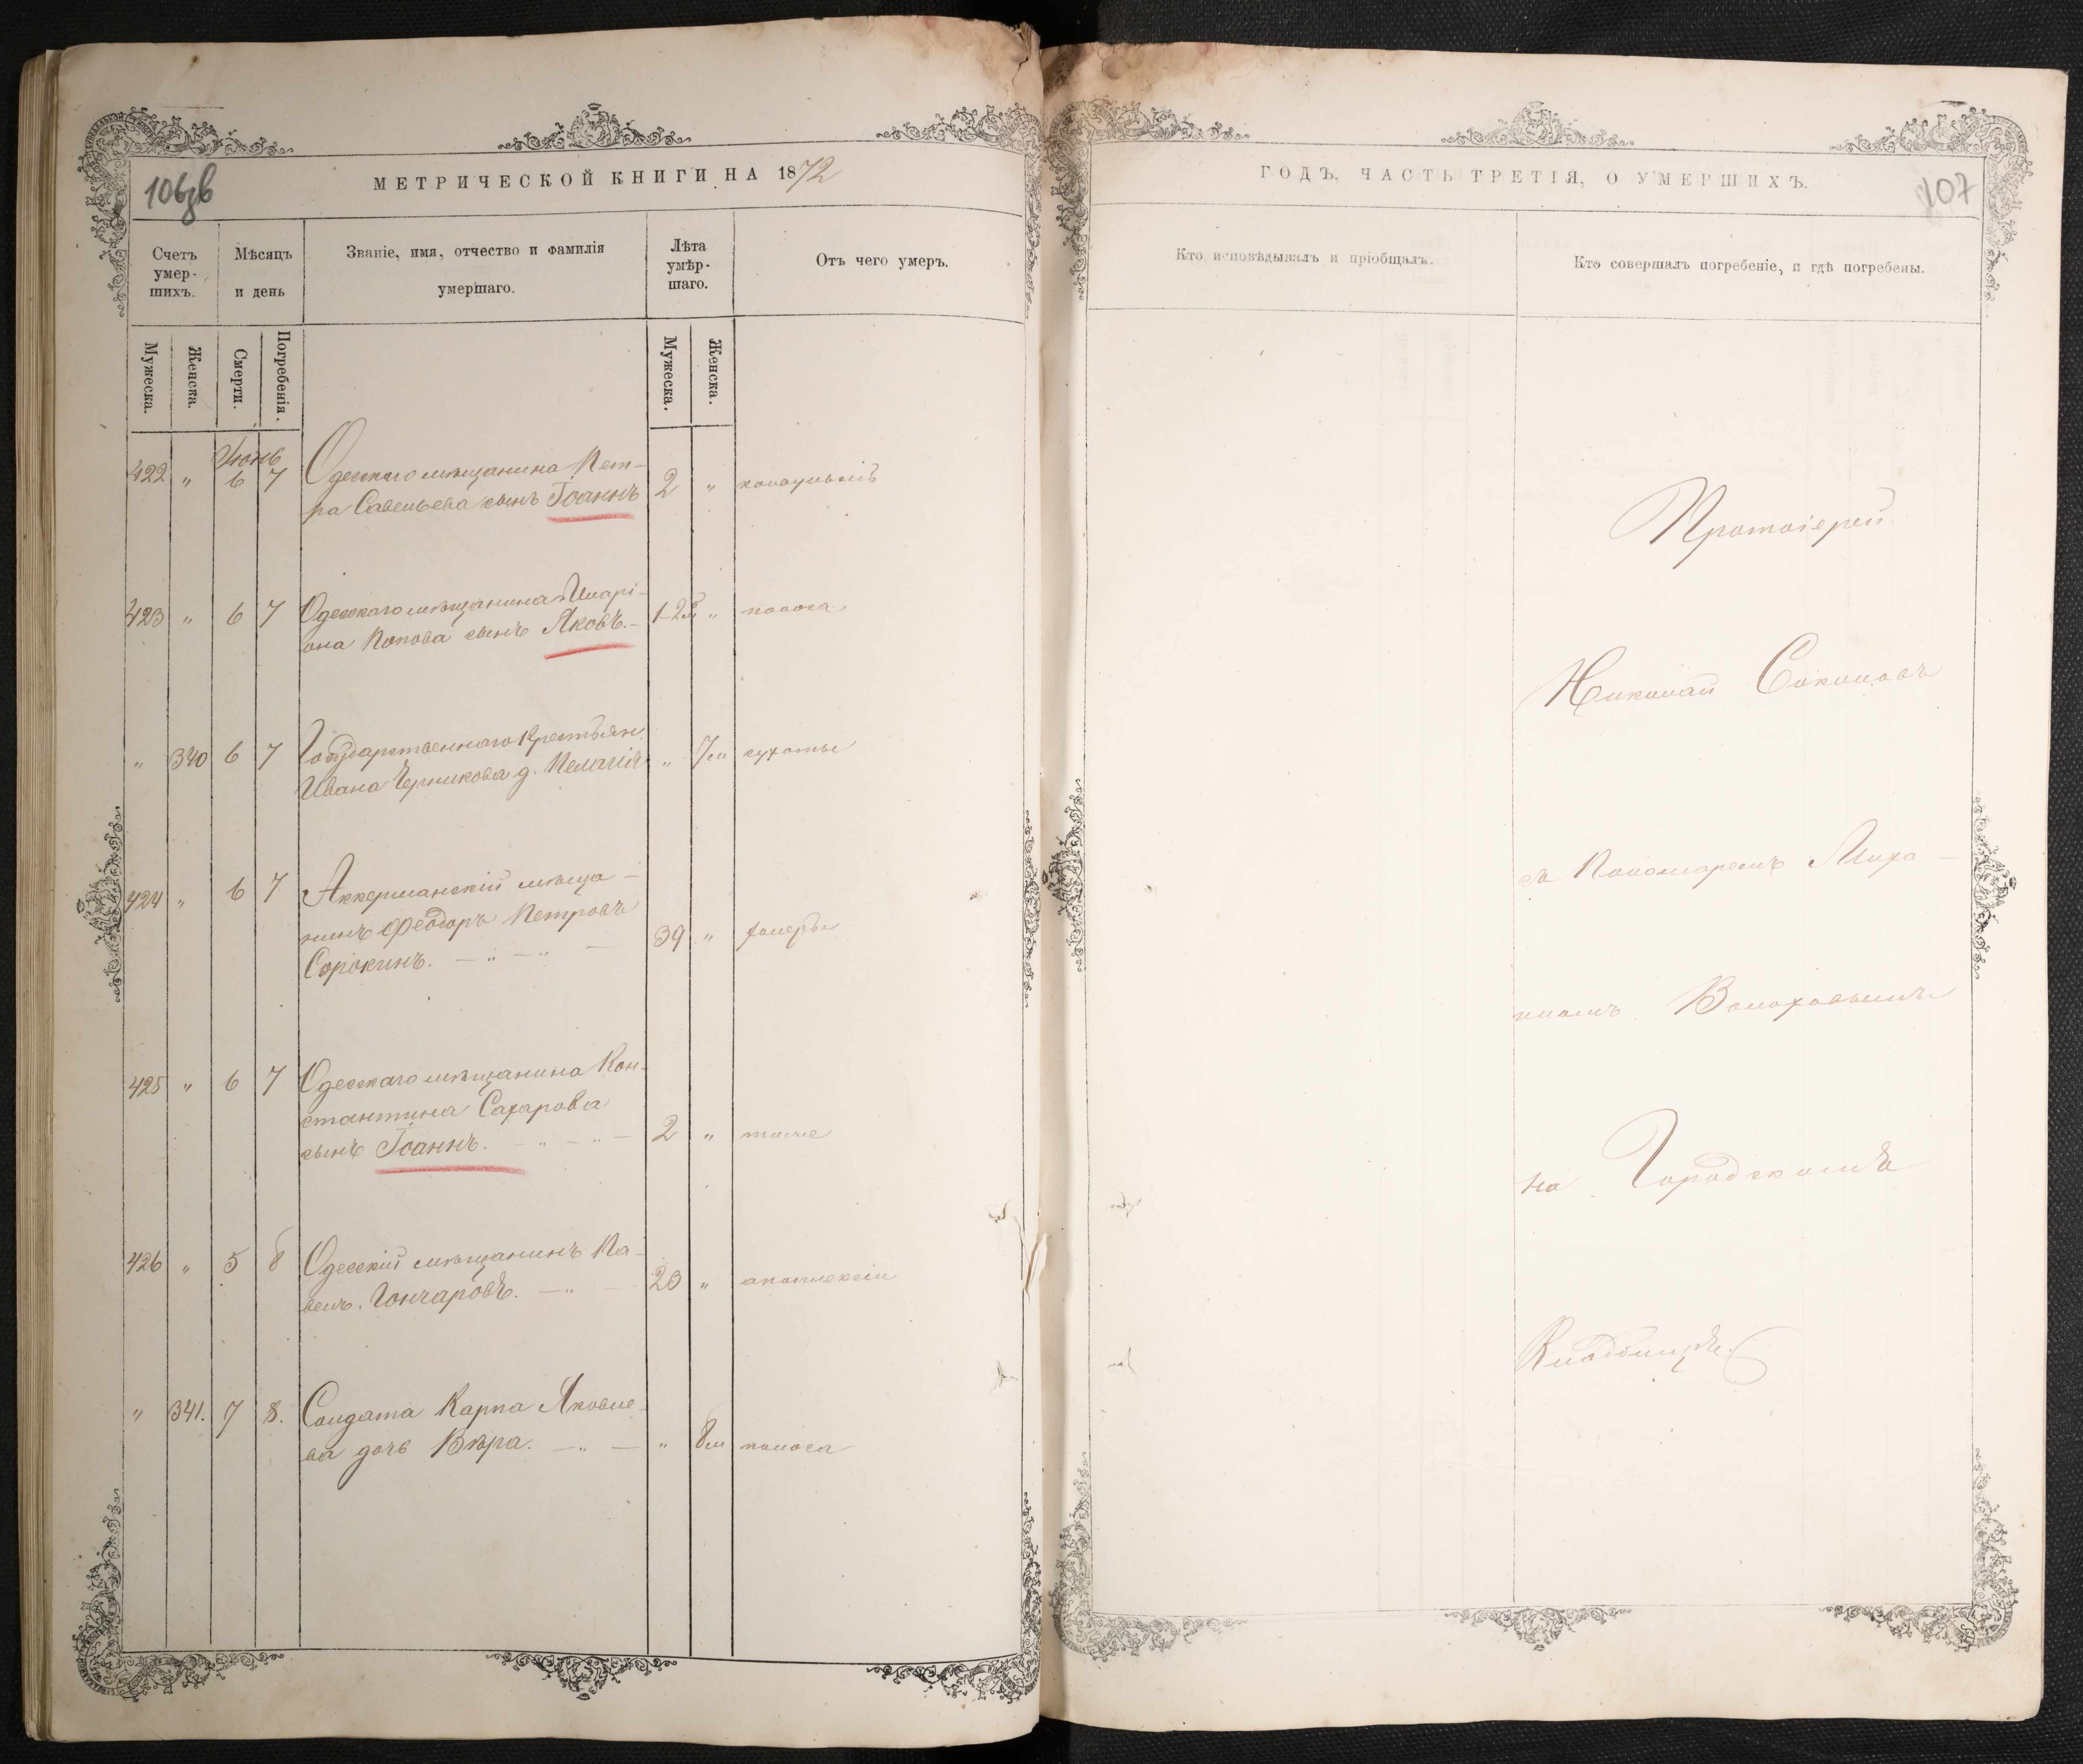 МЕТРИЧЕСКОЙ КНИГИ НА 1872
106зв
Счетъ умер-шихъ.
Мѣсяцъ и день
Званіе, имя, отчество и фамилія умершаго.
Лѣта умѣр-шаго.
Отъ чего умеръ.
Мужеска.
Женска.
Смерти.
Погребенія.
Мужеска.
Женска.
Іюнь
422 " 6 7 Одесскаго мѣщанина Пет-
ра Савельева сынъ Іоаннъ 2 "
423 " 6 7 Одесскаго мѣщанина Илларі-
она Попова сынъ Яковъ. " поноса
" 340 6 7 Государственнаго Крестьян.
Ивана Черникова д. Пелагія " 7м сухоты
424 " 6 7 Аккерманскій мѣща-
нинъ Феодоръ Петровъ
Сорокинъ. 39 " холеры
425 " 6 7 Одесскаго мѣщанина Кон-
стантина Сахарова
сынъ Іоаннъ. 2 " тоже
426 " 5 8 Одесскій мѣщанинъ Па-
велъ Гончаровъ. 20 " апоплексіи
" 341. 7 8. Солдата Карпа Яковле-
ва дочь Вѣра. " 8м поноса
ГОДЪ, ЧАСТЬ ТРЕТІЯ, О УМЕРШИХЪ.
107
Кто исповѣдывалъ и пріобщалъ.
Кто совершалъ погребеніе, и гдѣ погребены.
Протоіерей
Николай Соколовъ
съ Пономаремъ Миха-
иломъ Волоховымъ
на Городскомъ
Кладбищѣ.